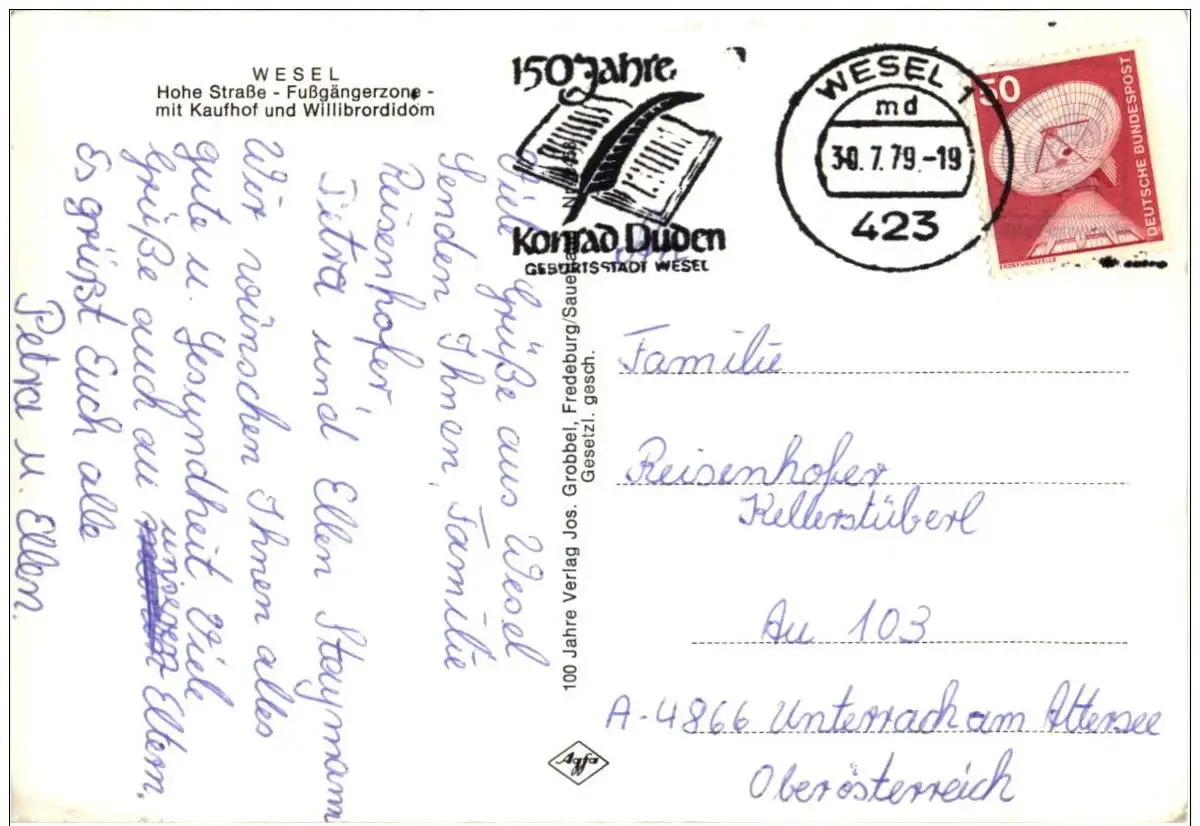 WESEL
Hohe Straße - Fußgängerzone -
mit Kaufhof und Willibrordidom
150 Jahre
Konrad Duden
GEBURTSSTADT WESEL
WESEL 1
md
30.7.79.-19
423
50
DEUTSCHE BUNDESPOST
ERDEFUNKSTELLE
Viele Grüße aus Wesel
senden Ihnen, Familie
Reisenhofer,
Petra und Ellen
Wir wünschen Ihnen alles
gute u. Gesundheit. Viele
Grüße auch an unseren Eltern.
Es grüßt Euch alle
Petra u. Ellen.
100 Jahre Verlag Jos. Grobbel, Fredeburg/
Gesetzl. gesch.
An
Familie
Reisenhofer
Kellerstüberl
Au 103
A-4866 Unterrach am Attersee
Oberösterreich
Agfa